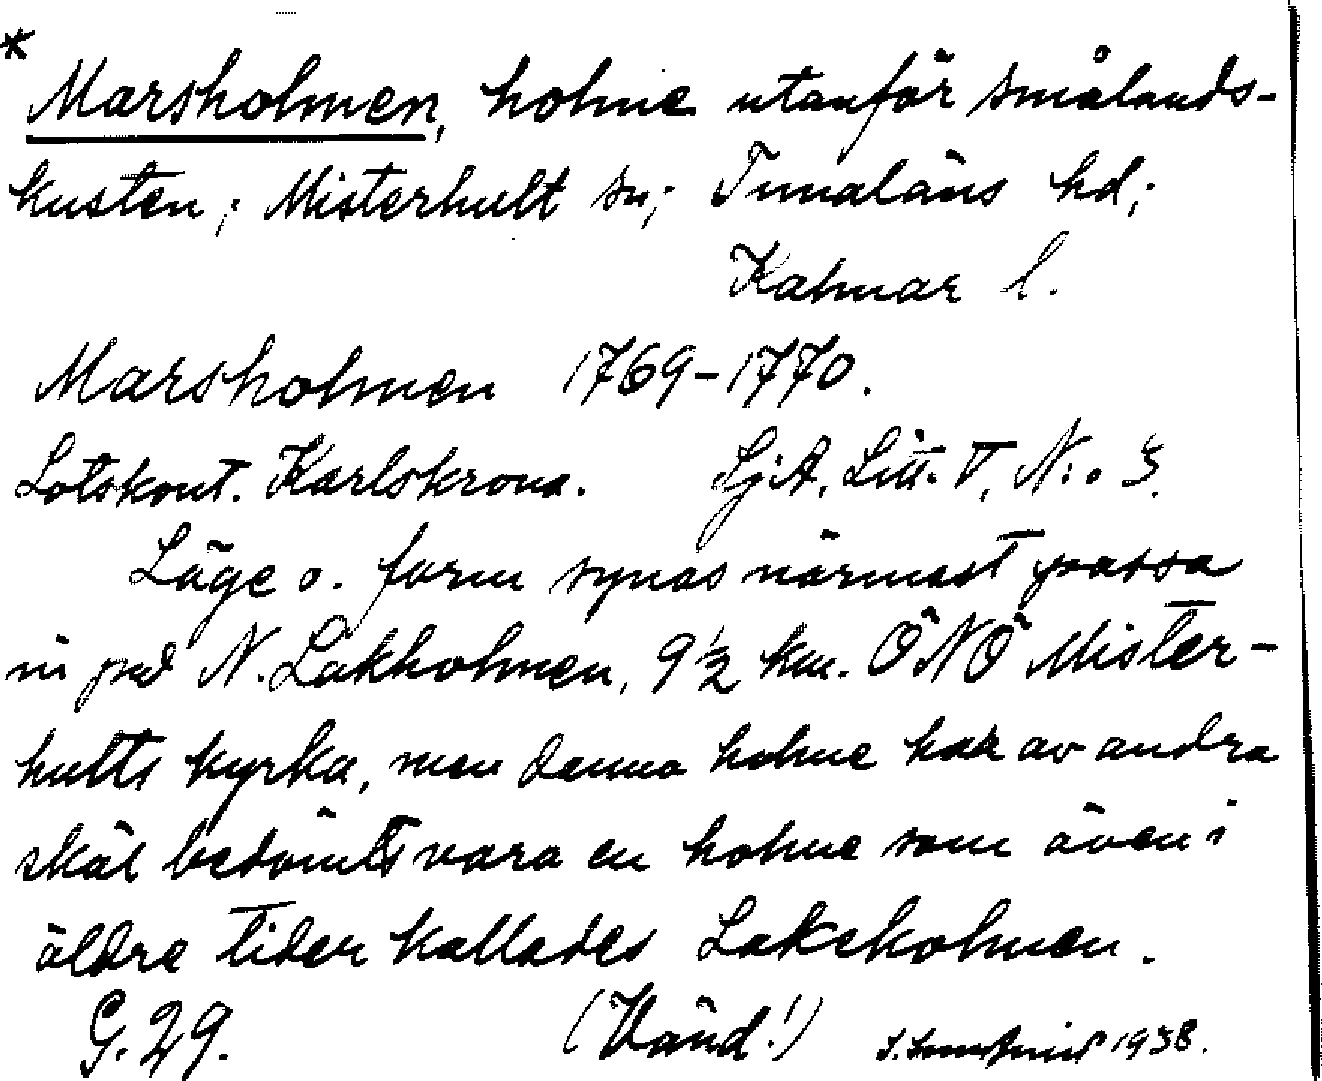 *
Marsholmen, holme utanför Smålands-
kusten; Misterhult sn; Tunaläns hd;
Kalmar l.
Marsholmen 1769-1770.
Lotskont. Karlskrona. SjA. Litt. V, N:o 3.
Läge o. form synas närmast passa
in på N. Lakholmen, 9½ km. ÖNÖ Mister-
hults kyrka, men denna holme har av andra
skäl bedömts vara en holme som även i
äldre tider kallades Lakeholmen.
G. 29. (Vänd!) 1938.